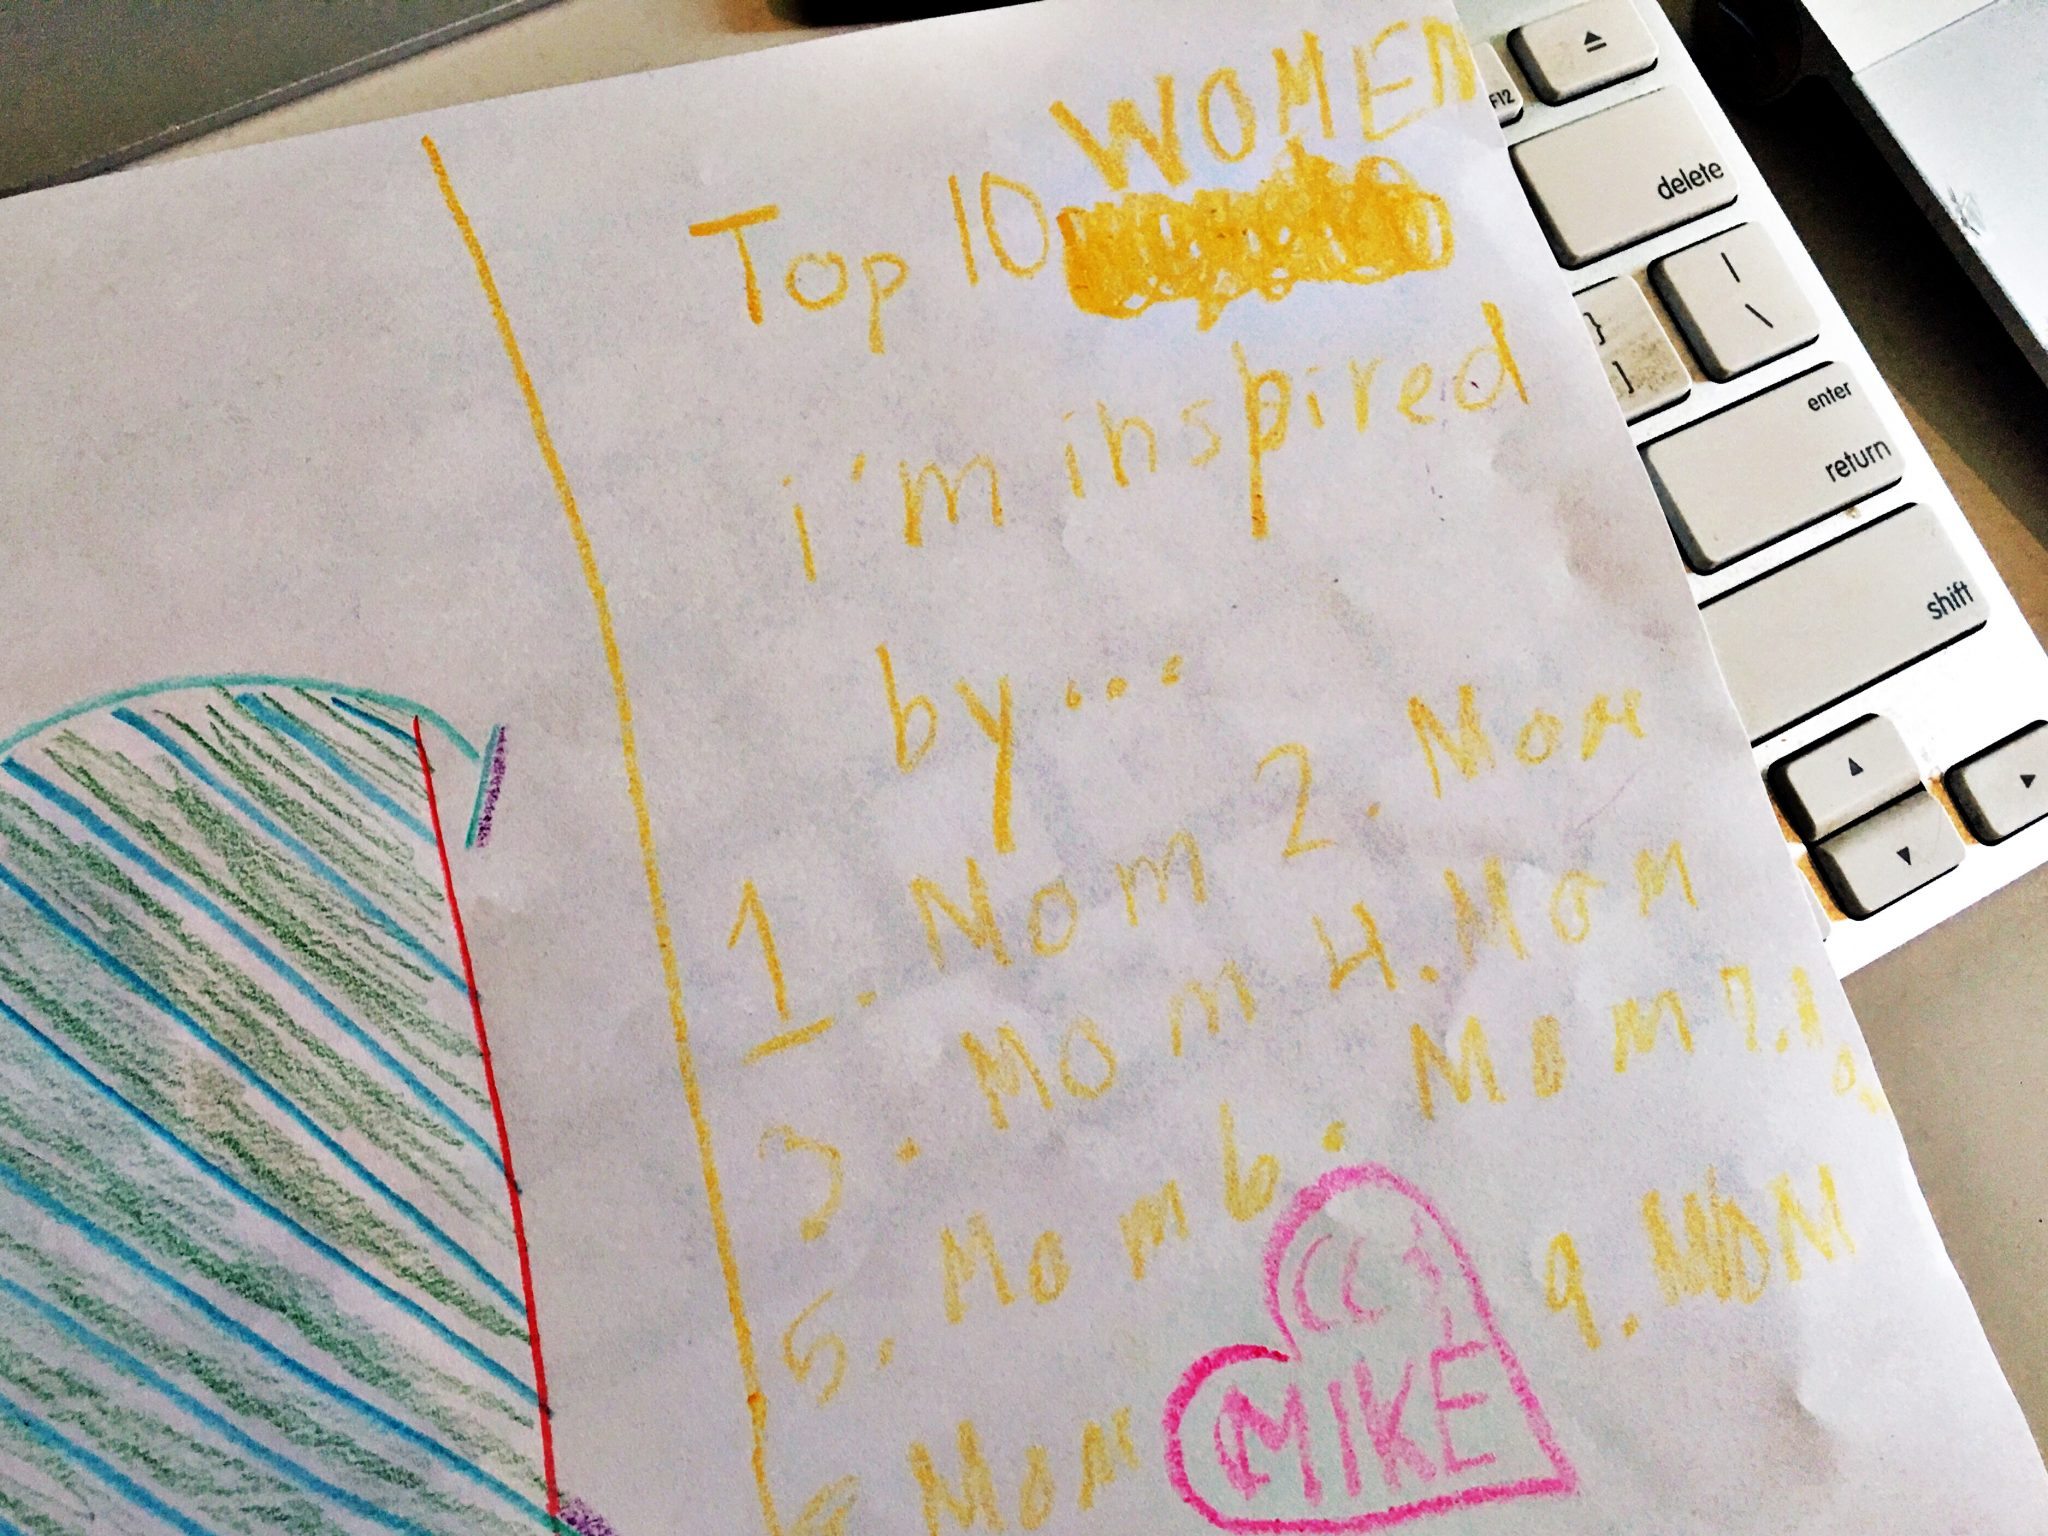 WOMEN
Top 10
i'm inspired
by...
1. Mom 2. Mom
3. Mom 4. Mom
5. Mom 6. Mom 7.
Mom 9. MOM
MIKE
F12
delete
|
\
}
]
enter
return
shift